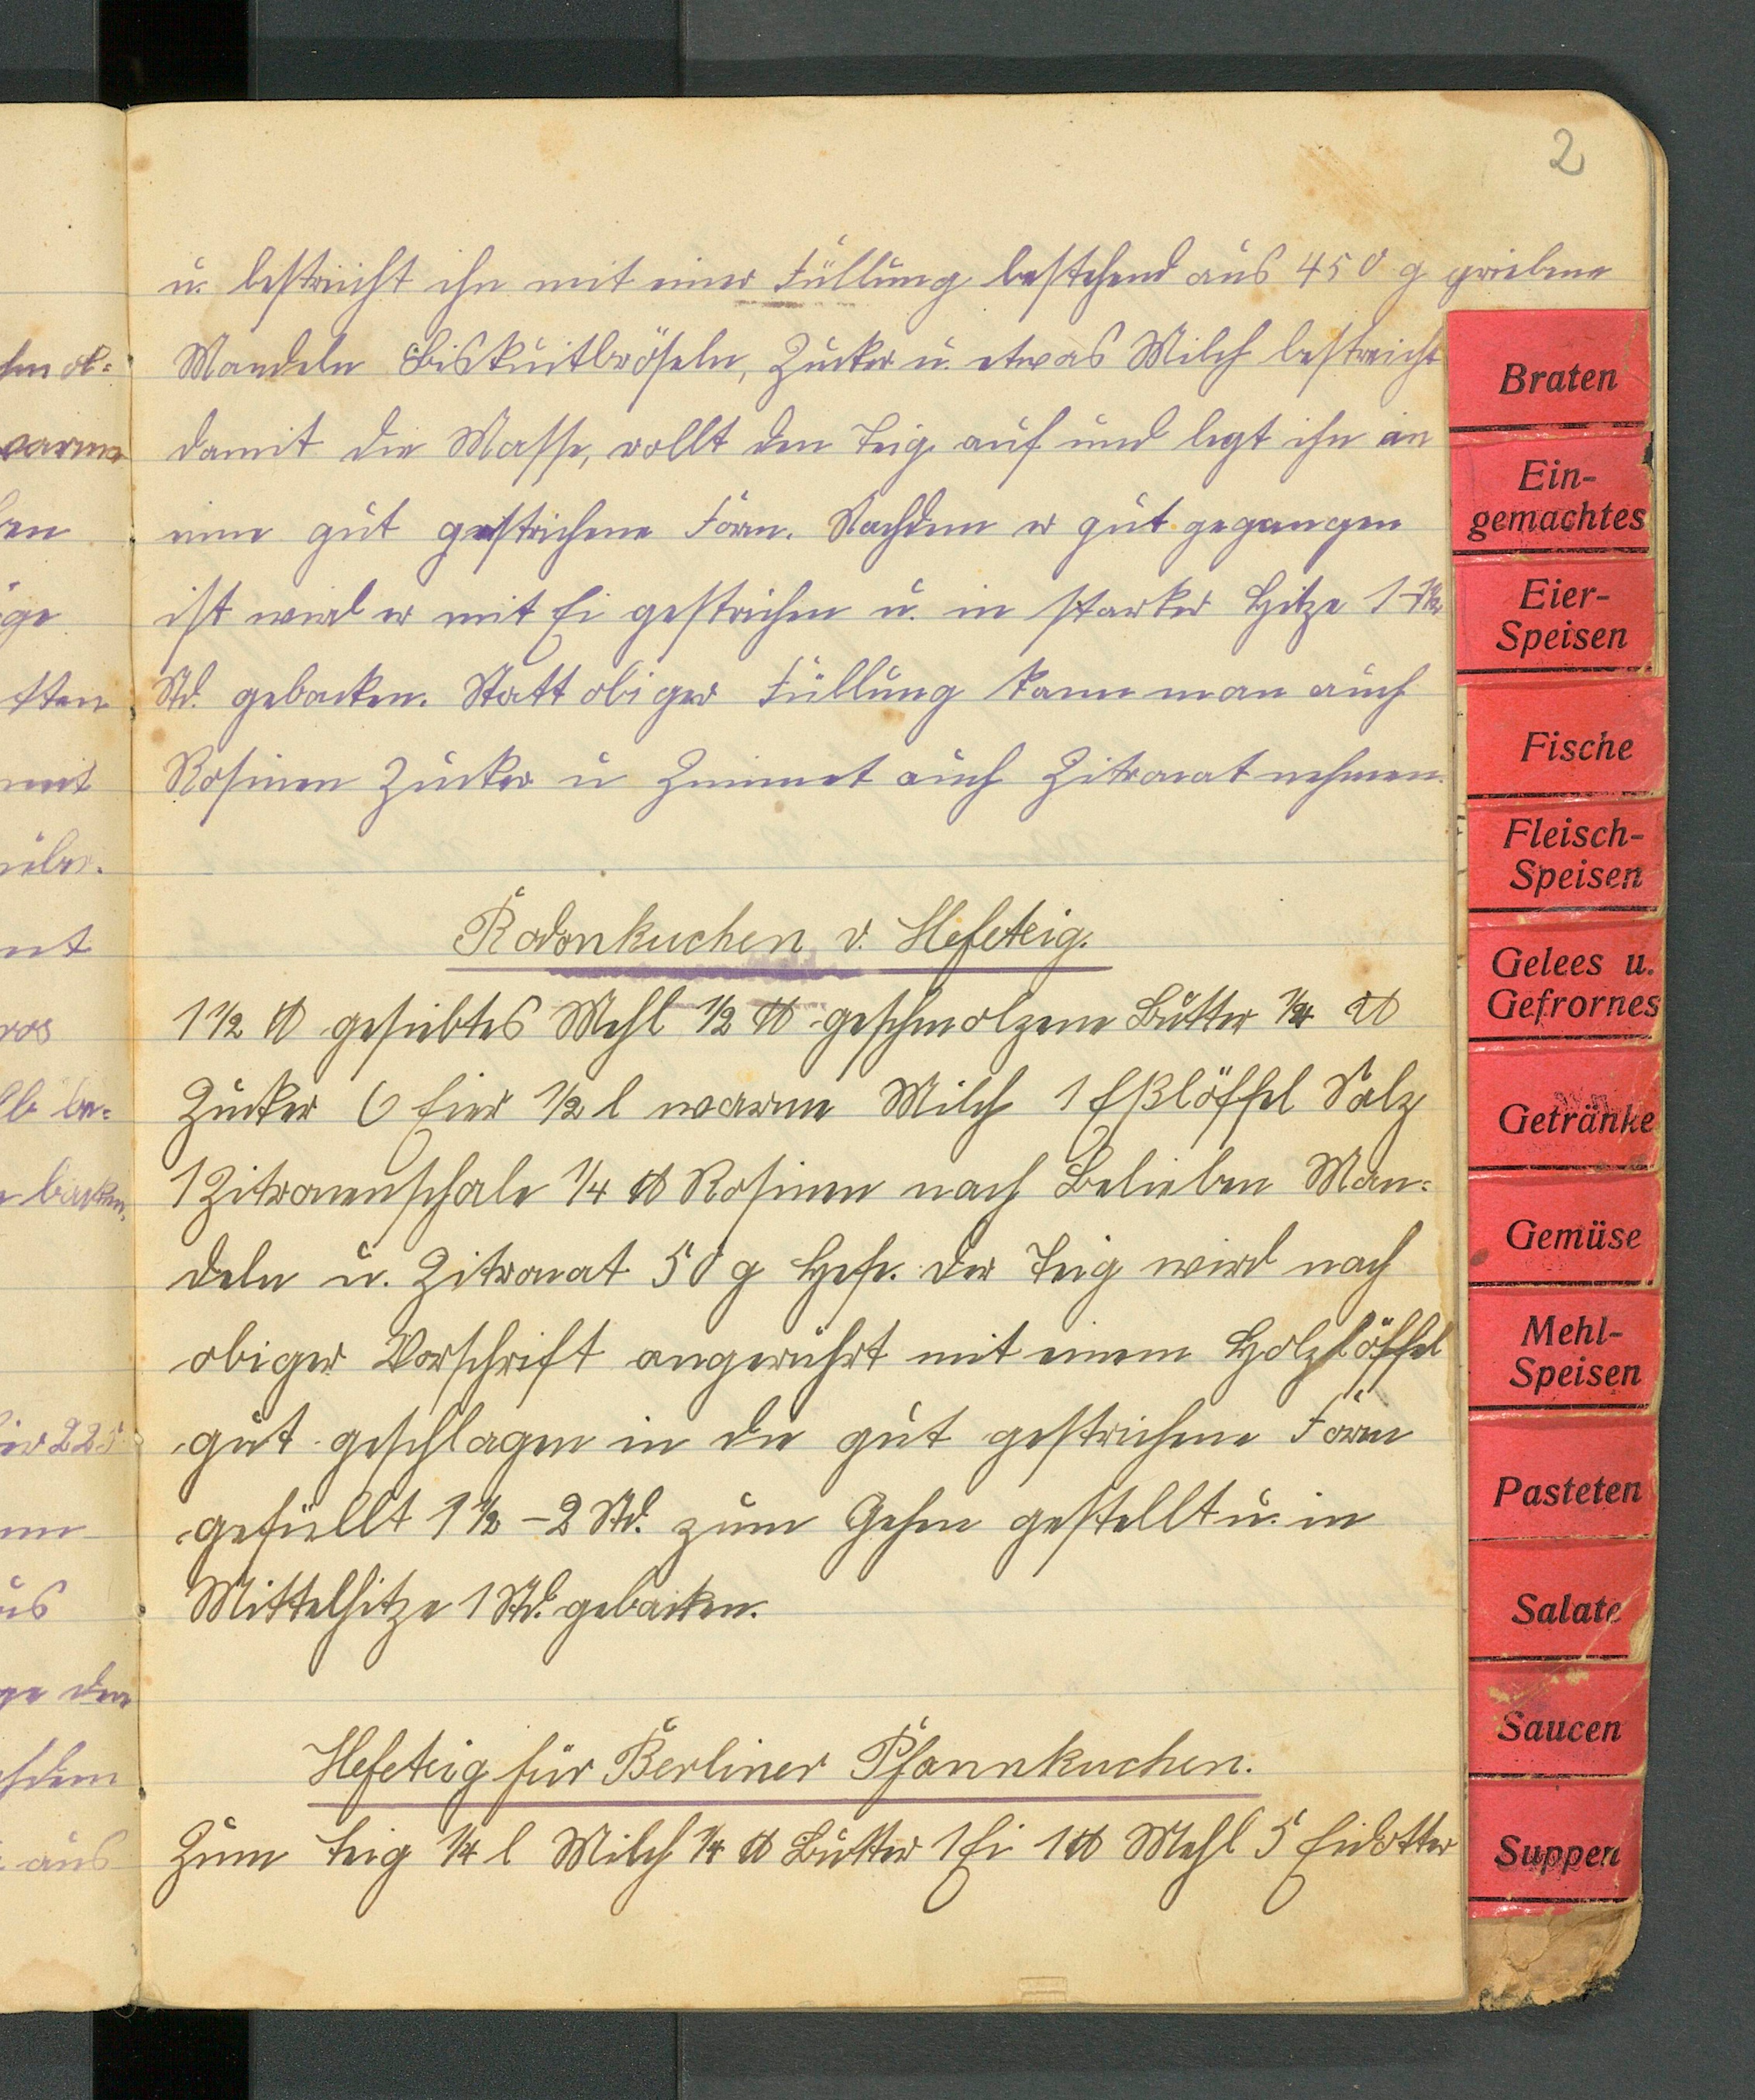 2
u. bestreicht ihn mit einer Füllung bestehend aus 450 g geriebene
Mandeln Biskuitbröseln, Zucker u. etwas Milch bestreicht
damit die Masse, rollt den Teig auf und legt ihn in
eine gut gestrichene Form. Nachdem er gut gegangen
ist wird er mit Ei gestrichen u. in starker Hitze 1-1½
Std. gebacken. Statt obiger Füllung kann man auch
Rosinen Zucker u Zimmet auch Zitronat nehmen.
Rodonkuchen v. Hefeteig.
1½ ℔ gesiebtes Mehl ½ ℔ geschmolzene Butter ¼ ℔
Zucker 6 Eier ½ l warme Milch 1 Eßlöffel Salz
1 Zitronenschale ¼ ℔ Rosinen nach Belieben Man=
deln u. Zitronat 50 g Hefe. der Teig wird nach
obiger Vorschrift angerührt mit einem Holzlöffel
gut geschlagen in die gut gestrichene Form
gefüllt 1½ - 2 Std. zum Gehen gestellt u. in
Mittelhitze 1 Std. gebacken.
Hefeteig für Berliner Pfannkuchen.
Zum Teig ¼ l Milch ¼ ℔ Butter 1 Ei 1 ℔ Mehl 5 Eidotter
Braten
Ein-
gemachtes
Eier-
Speisen
Fische
Fleisch-
Speisen
Gelees u.
Gefrornes
Getränke
Gemüse
Mehl-
Speisen
Pasteten
Salate
Saucen
Suppen